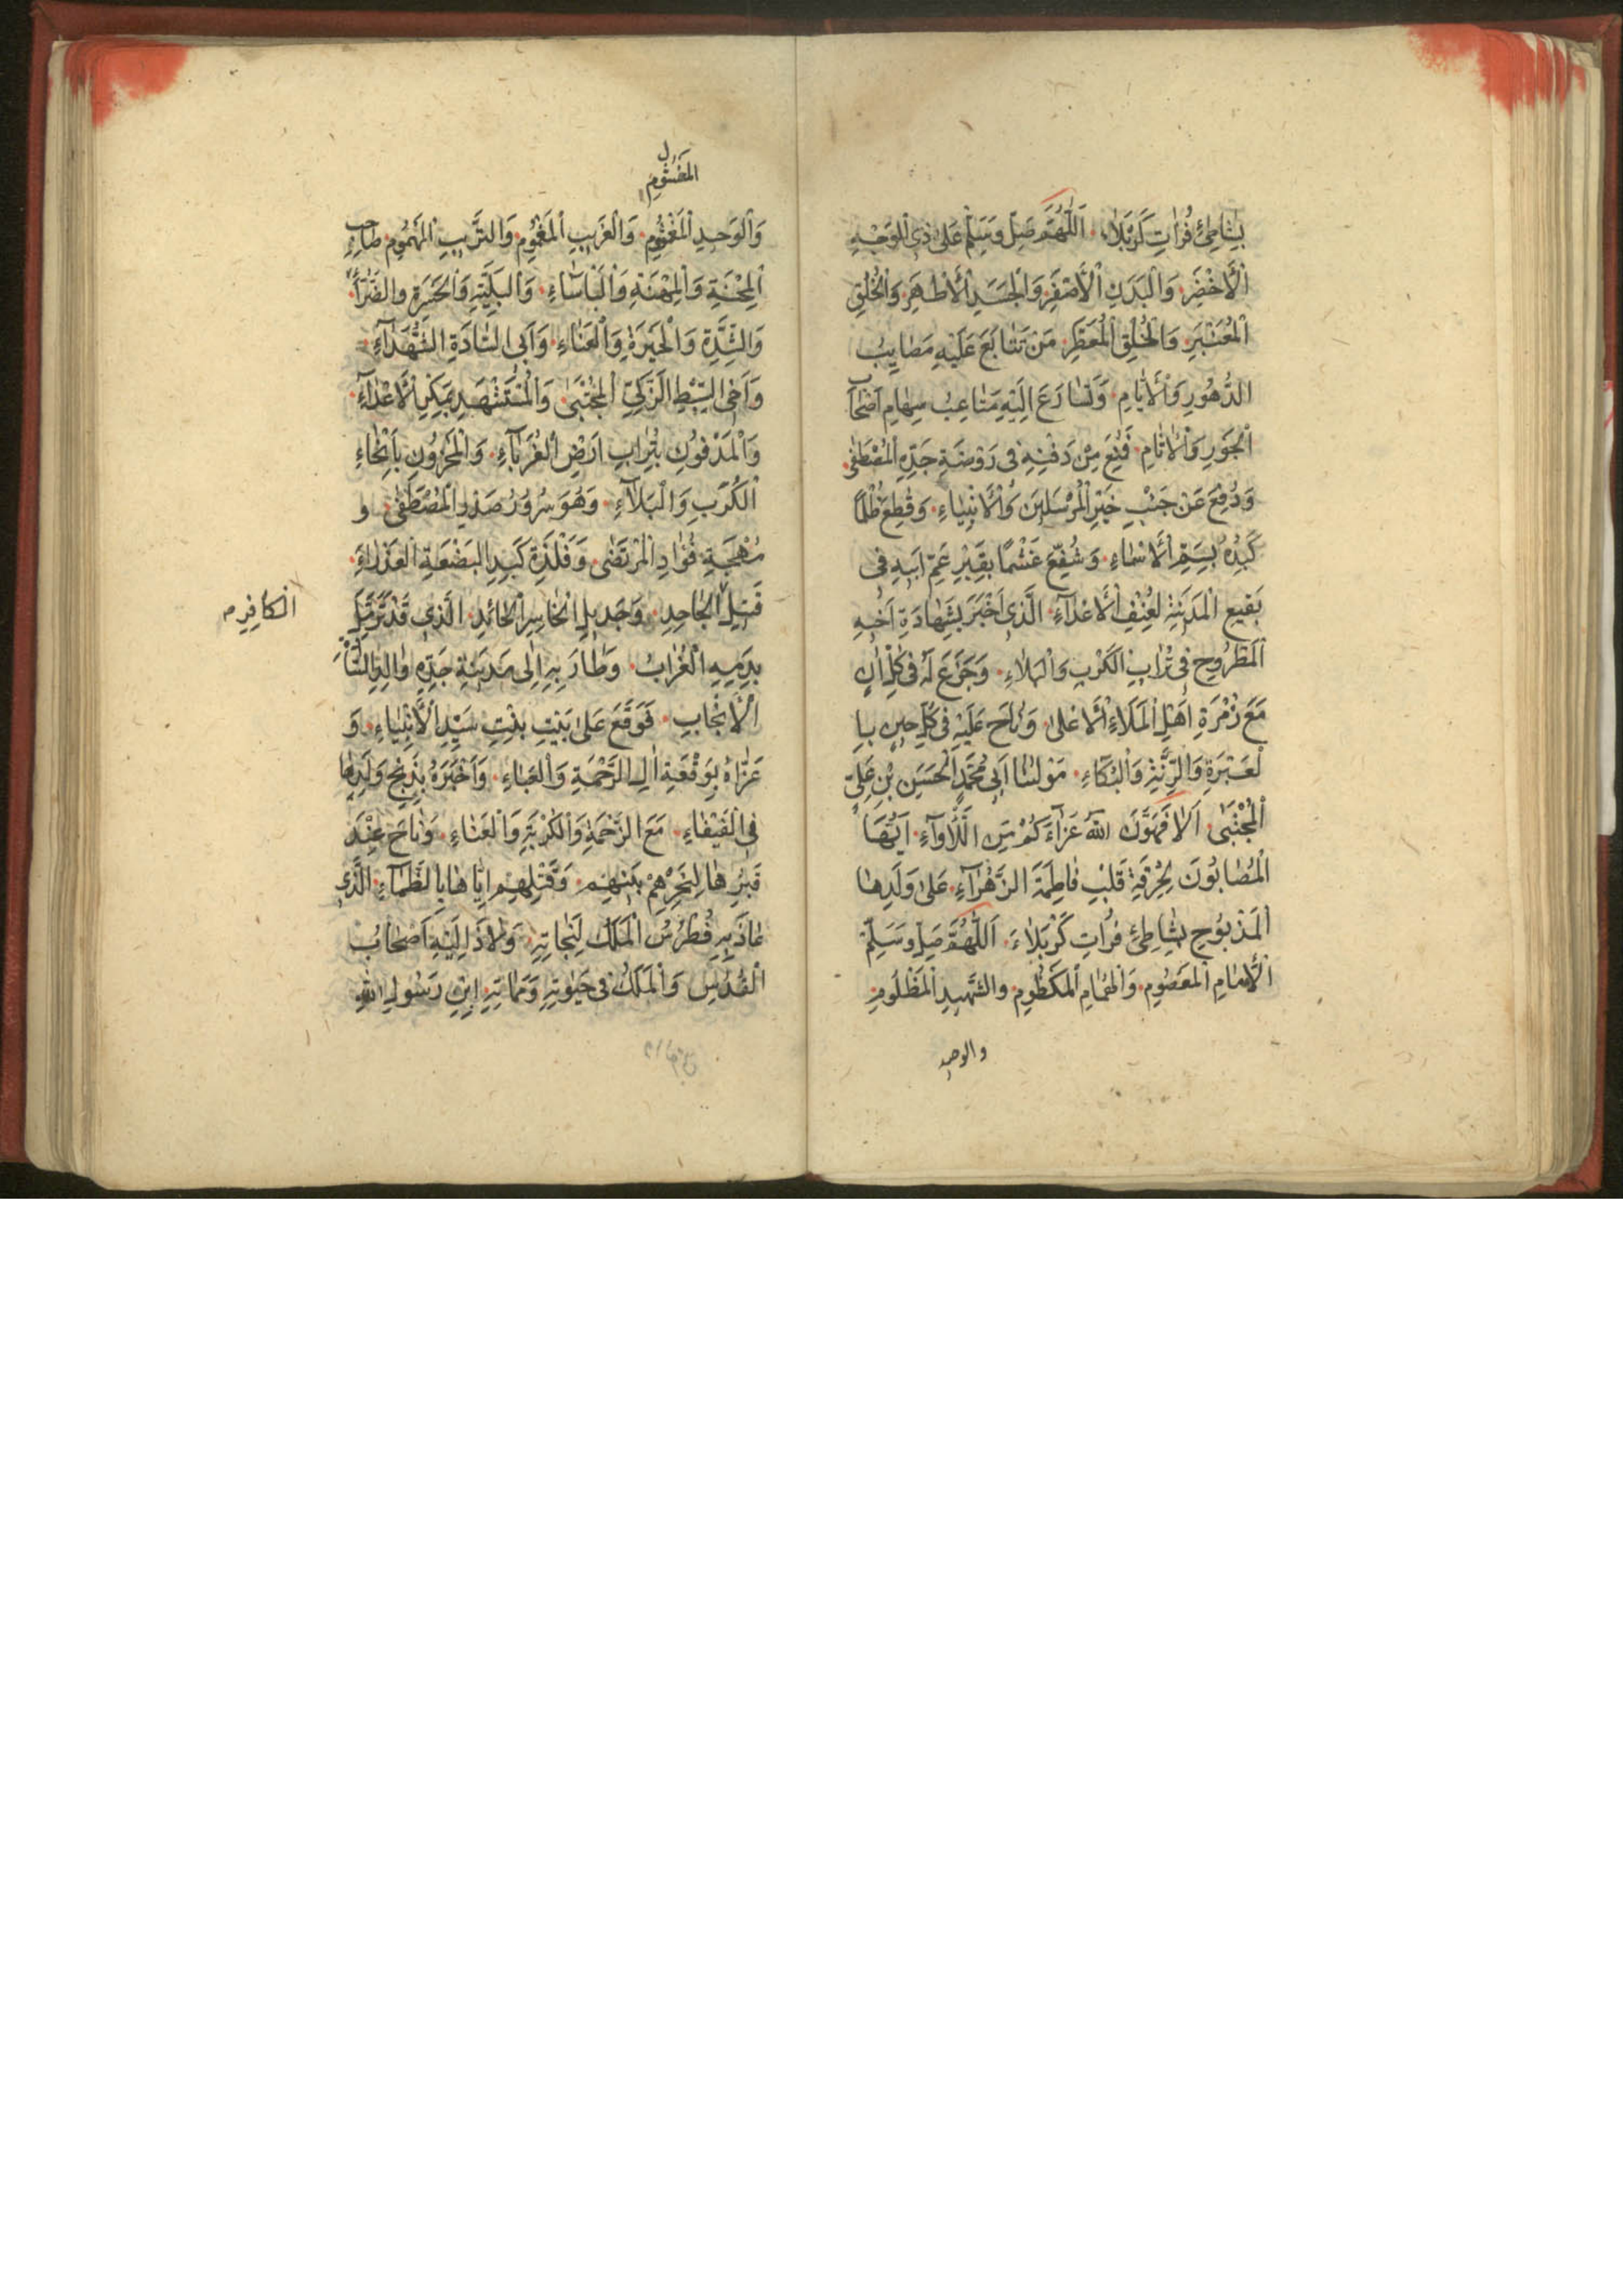 بِشَاطِئِ فُرَاتِ كَرْبَلَاء، اَللّٰهُمَّ صَلِّ وَسَلِّمْ عَلٰى ذِي الْوَجْهِ
الْأَخْضَرِ وَالْبَدَنِ الْأَصْفَرِ وَالْجَسَدِ الْأَطْهَرِ وَالْخُلُقِ
الْمُعَنْبَرِ وَالْخُلُقِ الْمُعَطَّرِ مَنْ تَتَابَعَ عَلَيْهِ مَصَايِبُ
الدُّهُورِ وَالْأَيَّامِ وَتَسَارَعَ اِلَيْهِ مَتَاعِبُ سِهَامِ اَصْحَابِ
الْجَوْرِ وَالْاٰثَامِ فَمُنِعَ مِنْ دَفْنِهِ فِي رَوْضَةِ جَدِّهِ الْمُصْطَفٰى
وَدُفِعَ عَنْ جَنْبِ خَيْرِ الْمُرْسَلِينَ وَالْأَنْبِيَاءِ وَقُطِعَ ظُلْمًا
كَبِدُهُ بِسَمِّ الْأَسْمَاءِ وَشُفِّعَ غَشْمًا بِقَبْرِ عَمِّ اَبِيهِ فِي
بَقِيعِ الْمَدِينَةِ لِعُنْفِ الْأَعْدَآءِ الَّذِي اَخْبَرَ بِشَهَادَةِ اَخِيهِ
الْمَطْرُوحِ فِي تُرَابِ الْكَرْبِ وَالْبَلَاءِ وَجَزَعَ لَهُ فِي كُلِّ اٰنٍ
مَعَ زُمْرَةِ اَهْلِ الْمَلَاءِ الْأَعْلٰى وَنَاحَ عَلَيْهِ فِي كُلِّ حِينٍ بِا
لْعَبْرَةِ وَالرَّنَّةِ وَالْبُكَاءِ مَوْلٰنَا اَبِي مُحَمَّدٍ الْحَسَنِ بْنِ عَلِيٍّ
الْمُجْتَبٰى اَلَا فَهَوَّنَ اللّٰهُ عَزَآءَكُمْ مِنَ اللَّأْوَآءِ اَيُّهَا
الْمُصَابُونَ بِحُرْقَةِ قَلْبِ فَاطِمَةَ الزَّهْرَآءِ عَلٰى وَلَدِهَا
الْمَذْبُوحِ بِشَاطِئِ فُرَاتِ كَرْبَلَاءَ اَللّٰهُمَّ صَلِّ وَسَلِّمْ
الْإِمَامِ الْمَعْصُومِ وَالْهُمَامِ الْمَكْظُومِ وَالشَّهِيدِ الْمَظْلُومِ
والوحيد
وَالْوَحِيدِ الْمَغْشُومِ وَالْغَرِيبِ الْمَغْمُومِ وَالتَّرِيبِ الْمَهْمُومِ صَاحِبِ
الْمِحْنَةِ وَالْمِهْنَةِ وَالْبَأْسَاءِ وَالْبَلِيَّةِ وَالْحَسْرَةِ وَالضَّرَّآءِ
وَالشِّدَّةِ وَالْحَيْرَةِ وَالْعَنَاءِ وَاَبِي السَّادَةِ الشُّهَدَآءِ
وَاَخِي السِّبْطِ الزَّكِيِّ الْمُجْتَبٰى وَالْمُسْتَشْهَدِ بِمَكْرِ الْأَعْدَآءِ
وَالْمَدْفُونِ بِتُرَابِ اَرْضِ الْغُرَبَآءِ وَالْمَحْزُونِ بِاَنْحَاءِ
الْكُرَبِ وَالْبَلَآءِ وَهُوَ سُرُورُ صَدْرِ الْمُصْطَفٰى و
مُهْجَةِ فُؤَادِ الْمُرْتَضٰى وَفَلْذَةِ كَبِدِ الْبَضْعَةِ الْعَذْرَاءِ
قَتِيلِ الْجَاحِدِ وَجَدِيلِ الْخَاسِرِ الْحَائِدِ الَّذِي قَدْ تَرَمَّلَ
بِدَمِهِ الْغُرَابُ وَطَارَ بِهِ اِلٰى مَدِينَةِ جَدِّهِ
الْأَنْجَابِ فَوَقَعَ عَلٰى بَيْتِ بِنْتِ سَيِّدِ الْأَنْبِيَاءِ وَ
عَزَّاهُ بِوَقْعَةِ اٰلِ الرَّحْمَةِ وَالْعَبَاءِ وَاَخْبَرَهُ بِذَبْحِ وَلَدِهَا
فِي الْفَيْفَاءِ مَعَ الزَّحْمَةِ وَالْكُرْبَةِ وَالْعَنَاءِ وَنَاحَ عِنْدَ
قَبْرِهَا لِنَحْرِهِمْ وَقَتْلِهِمْ اِيَّاهَا بِالظَّمَآءِ الَّذِي
عَاذَ بِهِ فُطْرُسُ الْمَلَكُ لِنَجَاتِهِ وَلَاذَ اِلَيْهِ اَصْحَابُ
الْقُدْسِ وَالْمَلَكُ فِي حَيٰوتِهِ وَمَمَاتِهِ ابْنِ رَسُولِ اللّٰهِ
الكافرم